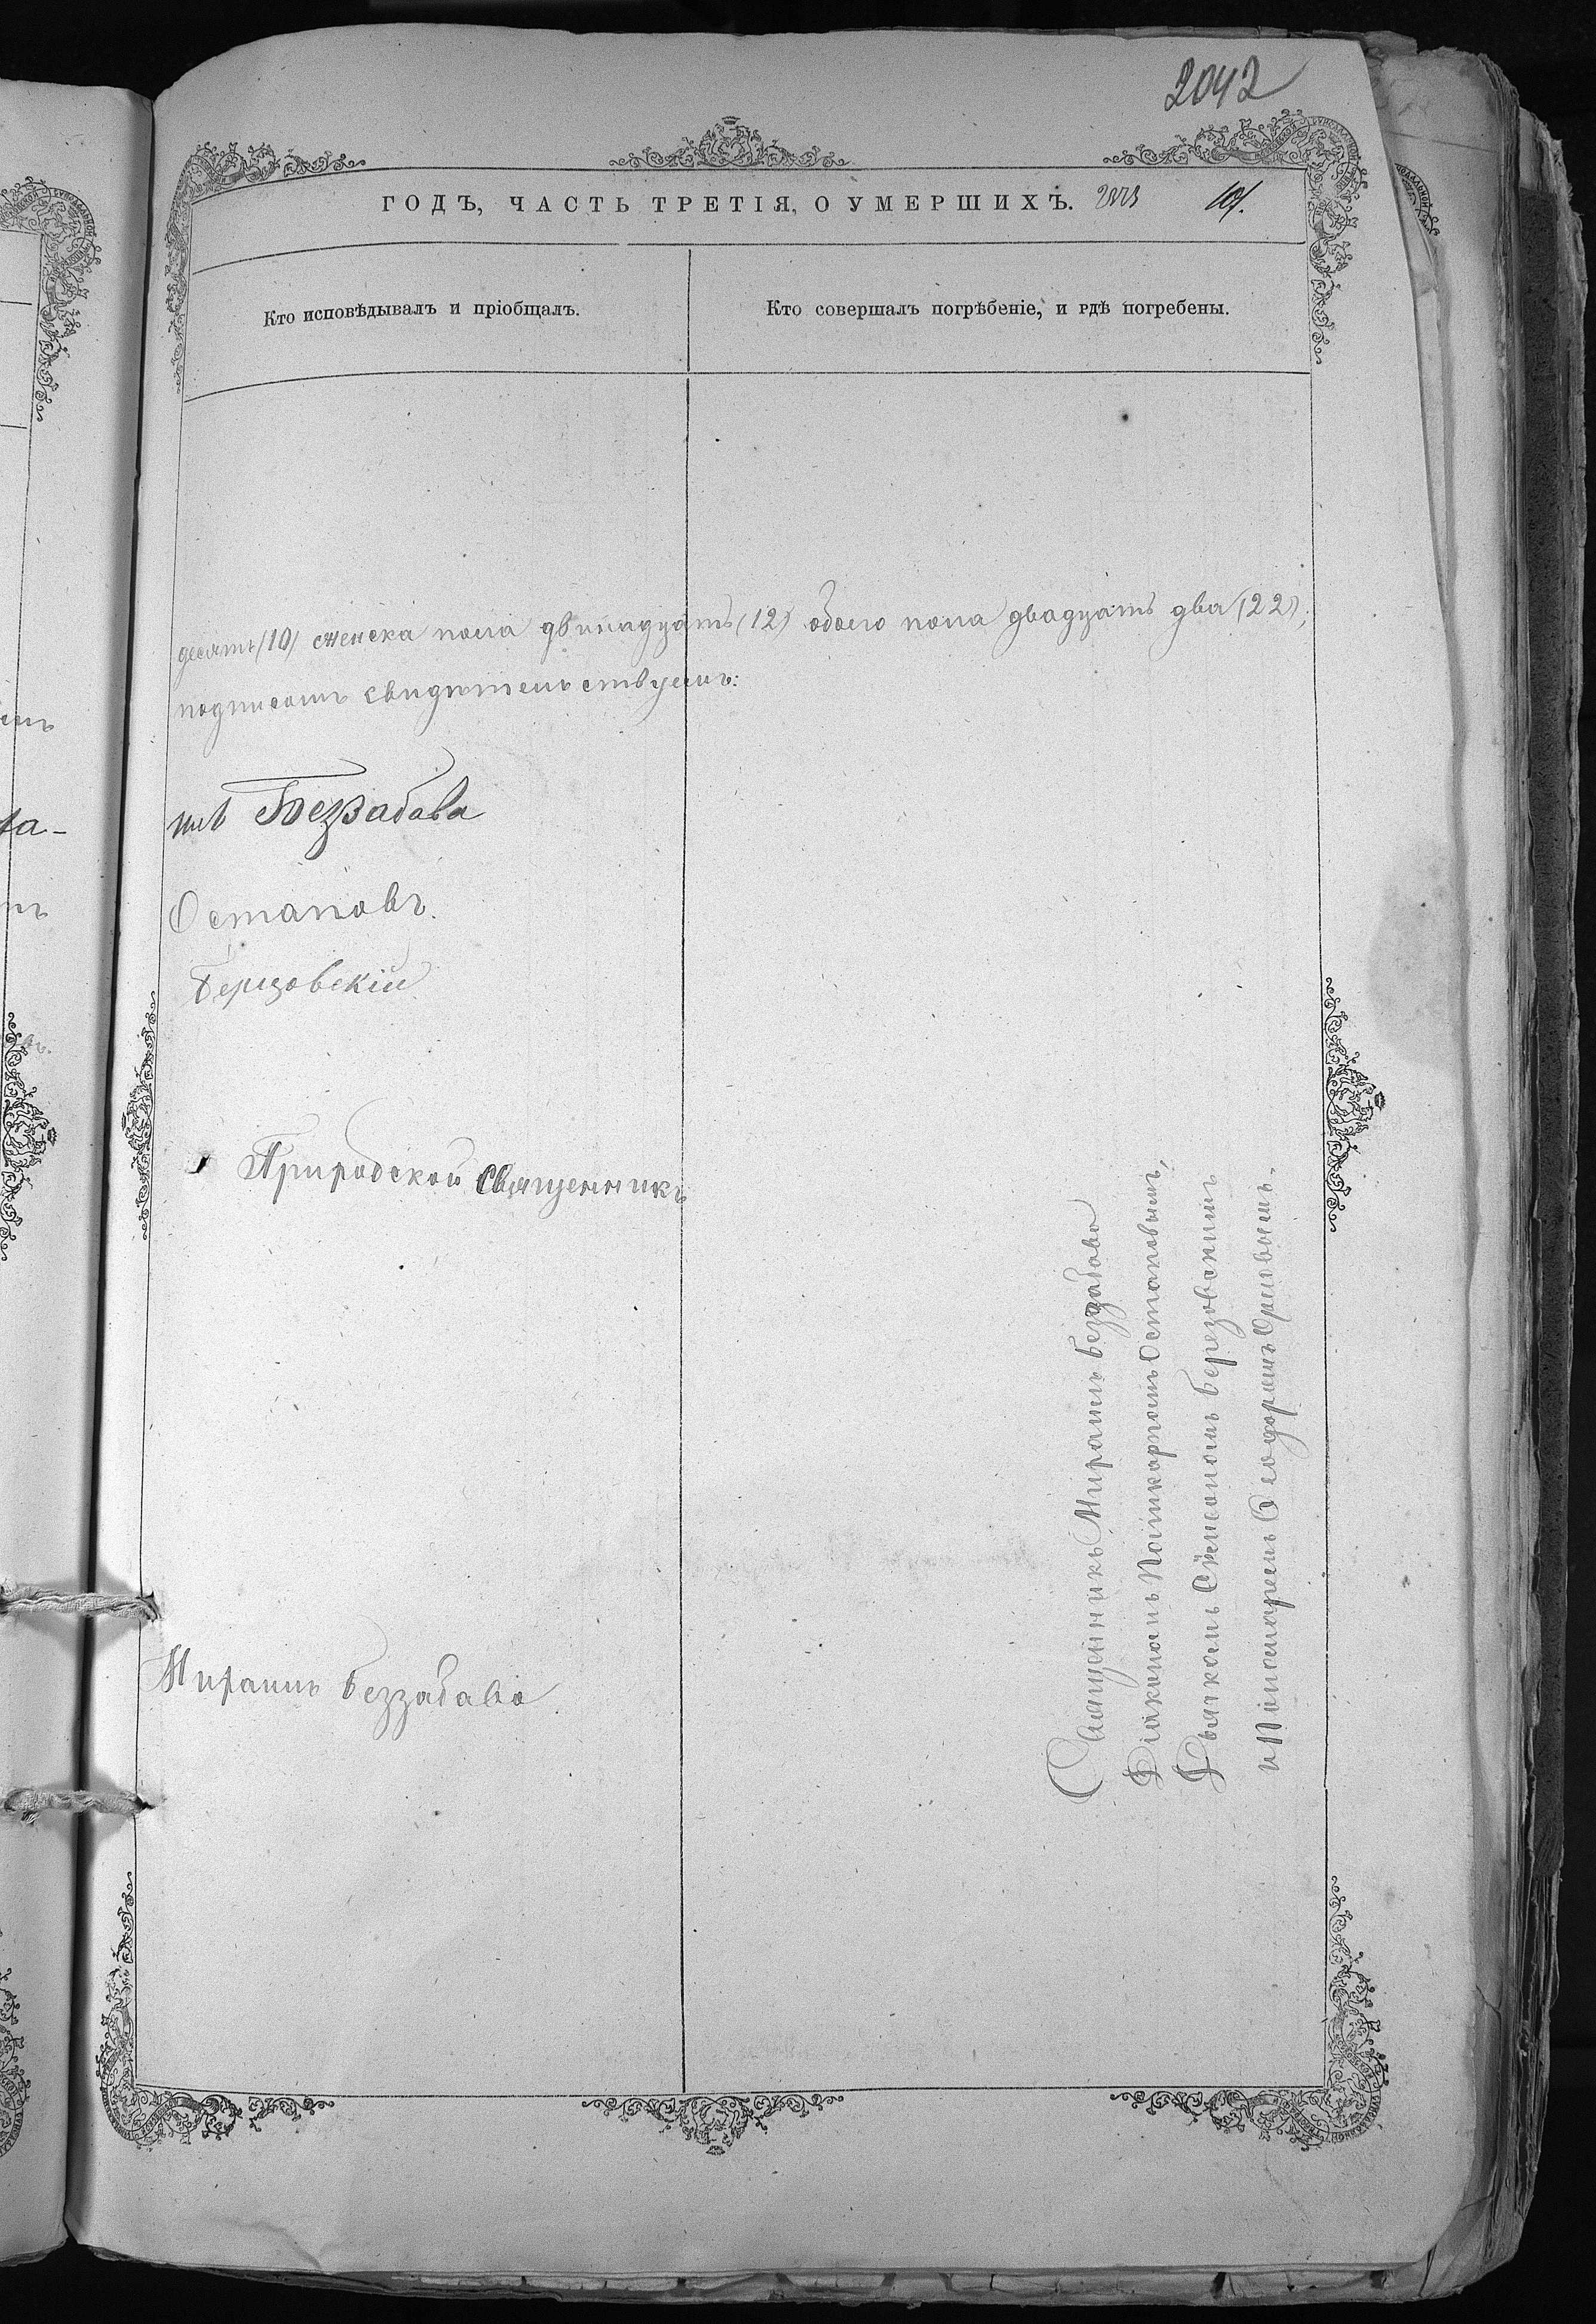 2042
ГОДЪ, ЧАСТЬ ТРЕТІЯ, О УМЕРШИХЪ.
Кто исповѣдывалъ и пріобщалъ.
Кто совершалъ погрѣбеніе, и гдѣ погребены.
десять (10) женска пола двѣнадцать (12) обоего пола двадцать два (22),
подписомъ свидѣтельствуемъ:
Беззабава
Остаповъ.
Березовскій
Священникъ
Беззабава
Священникъ Беззабава
Діакономъ Поликарпомъ Остаповымъ,
Дьякомъ Симеономъ Березовскимъ
и Пономаремъ Ѳеодоромъ Орловымъ.